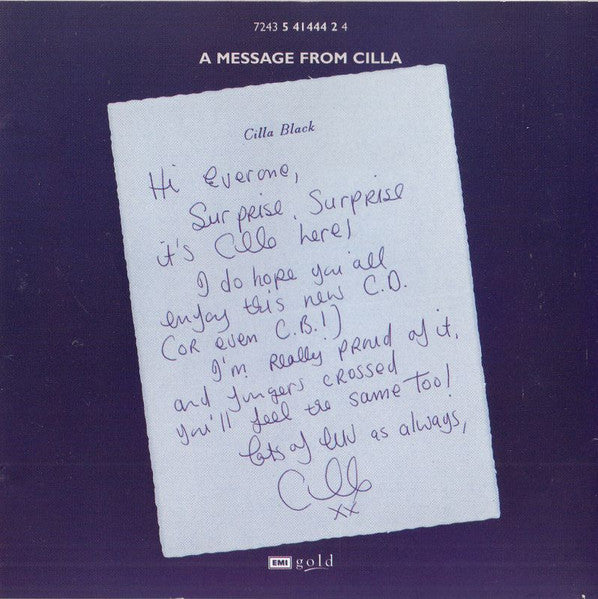 7243 5 41444 2 4
A MESSAGE FROM CILLA
Cilla Black
Hi Everone,
Surprise, Surprise
it's Cilla here!
I do hope you all
enjoy this new C.D.
(or even C.B.!)
I'm Really proud of it,
and fingers crossed
you'll feel the same too!
Lots of luv as always,
Cilla
xx
EMI gold